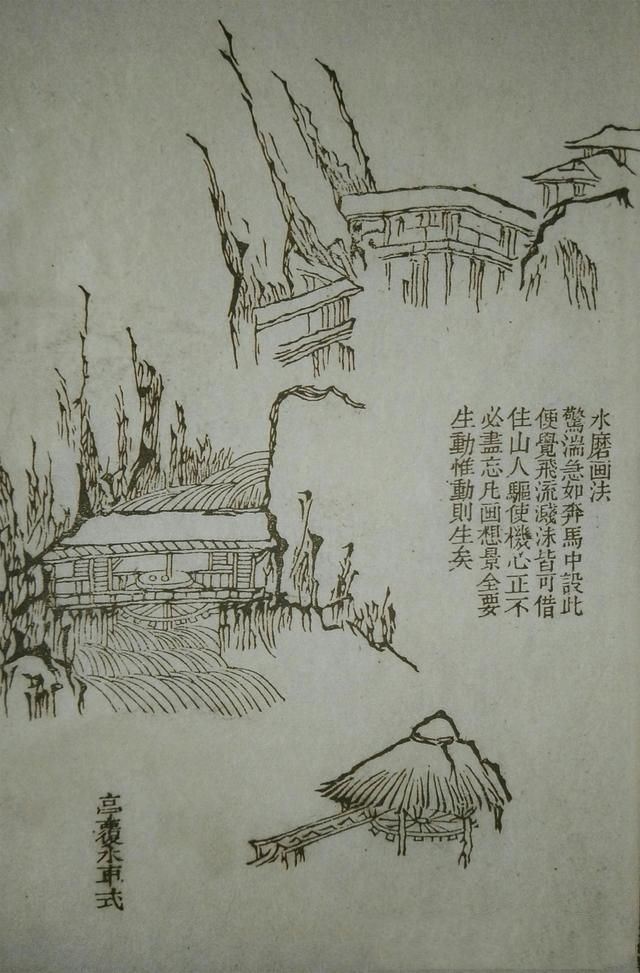 水磨画法
驚湍急如奔馬中設此
便覺飛流濺沫皆可借
住山人驅使機心正不
必盡忘凡画想景全要
生動惟動則生矣
亭覆水車式